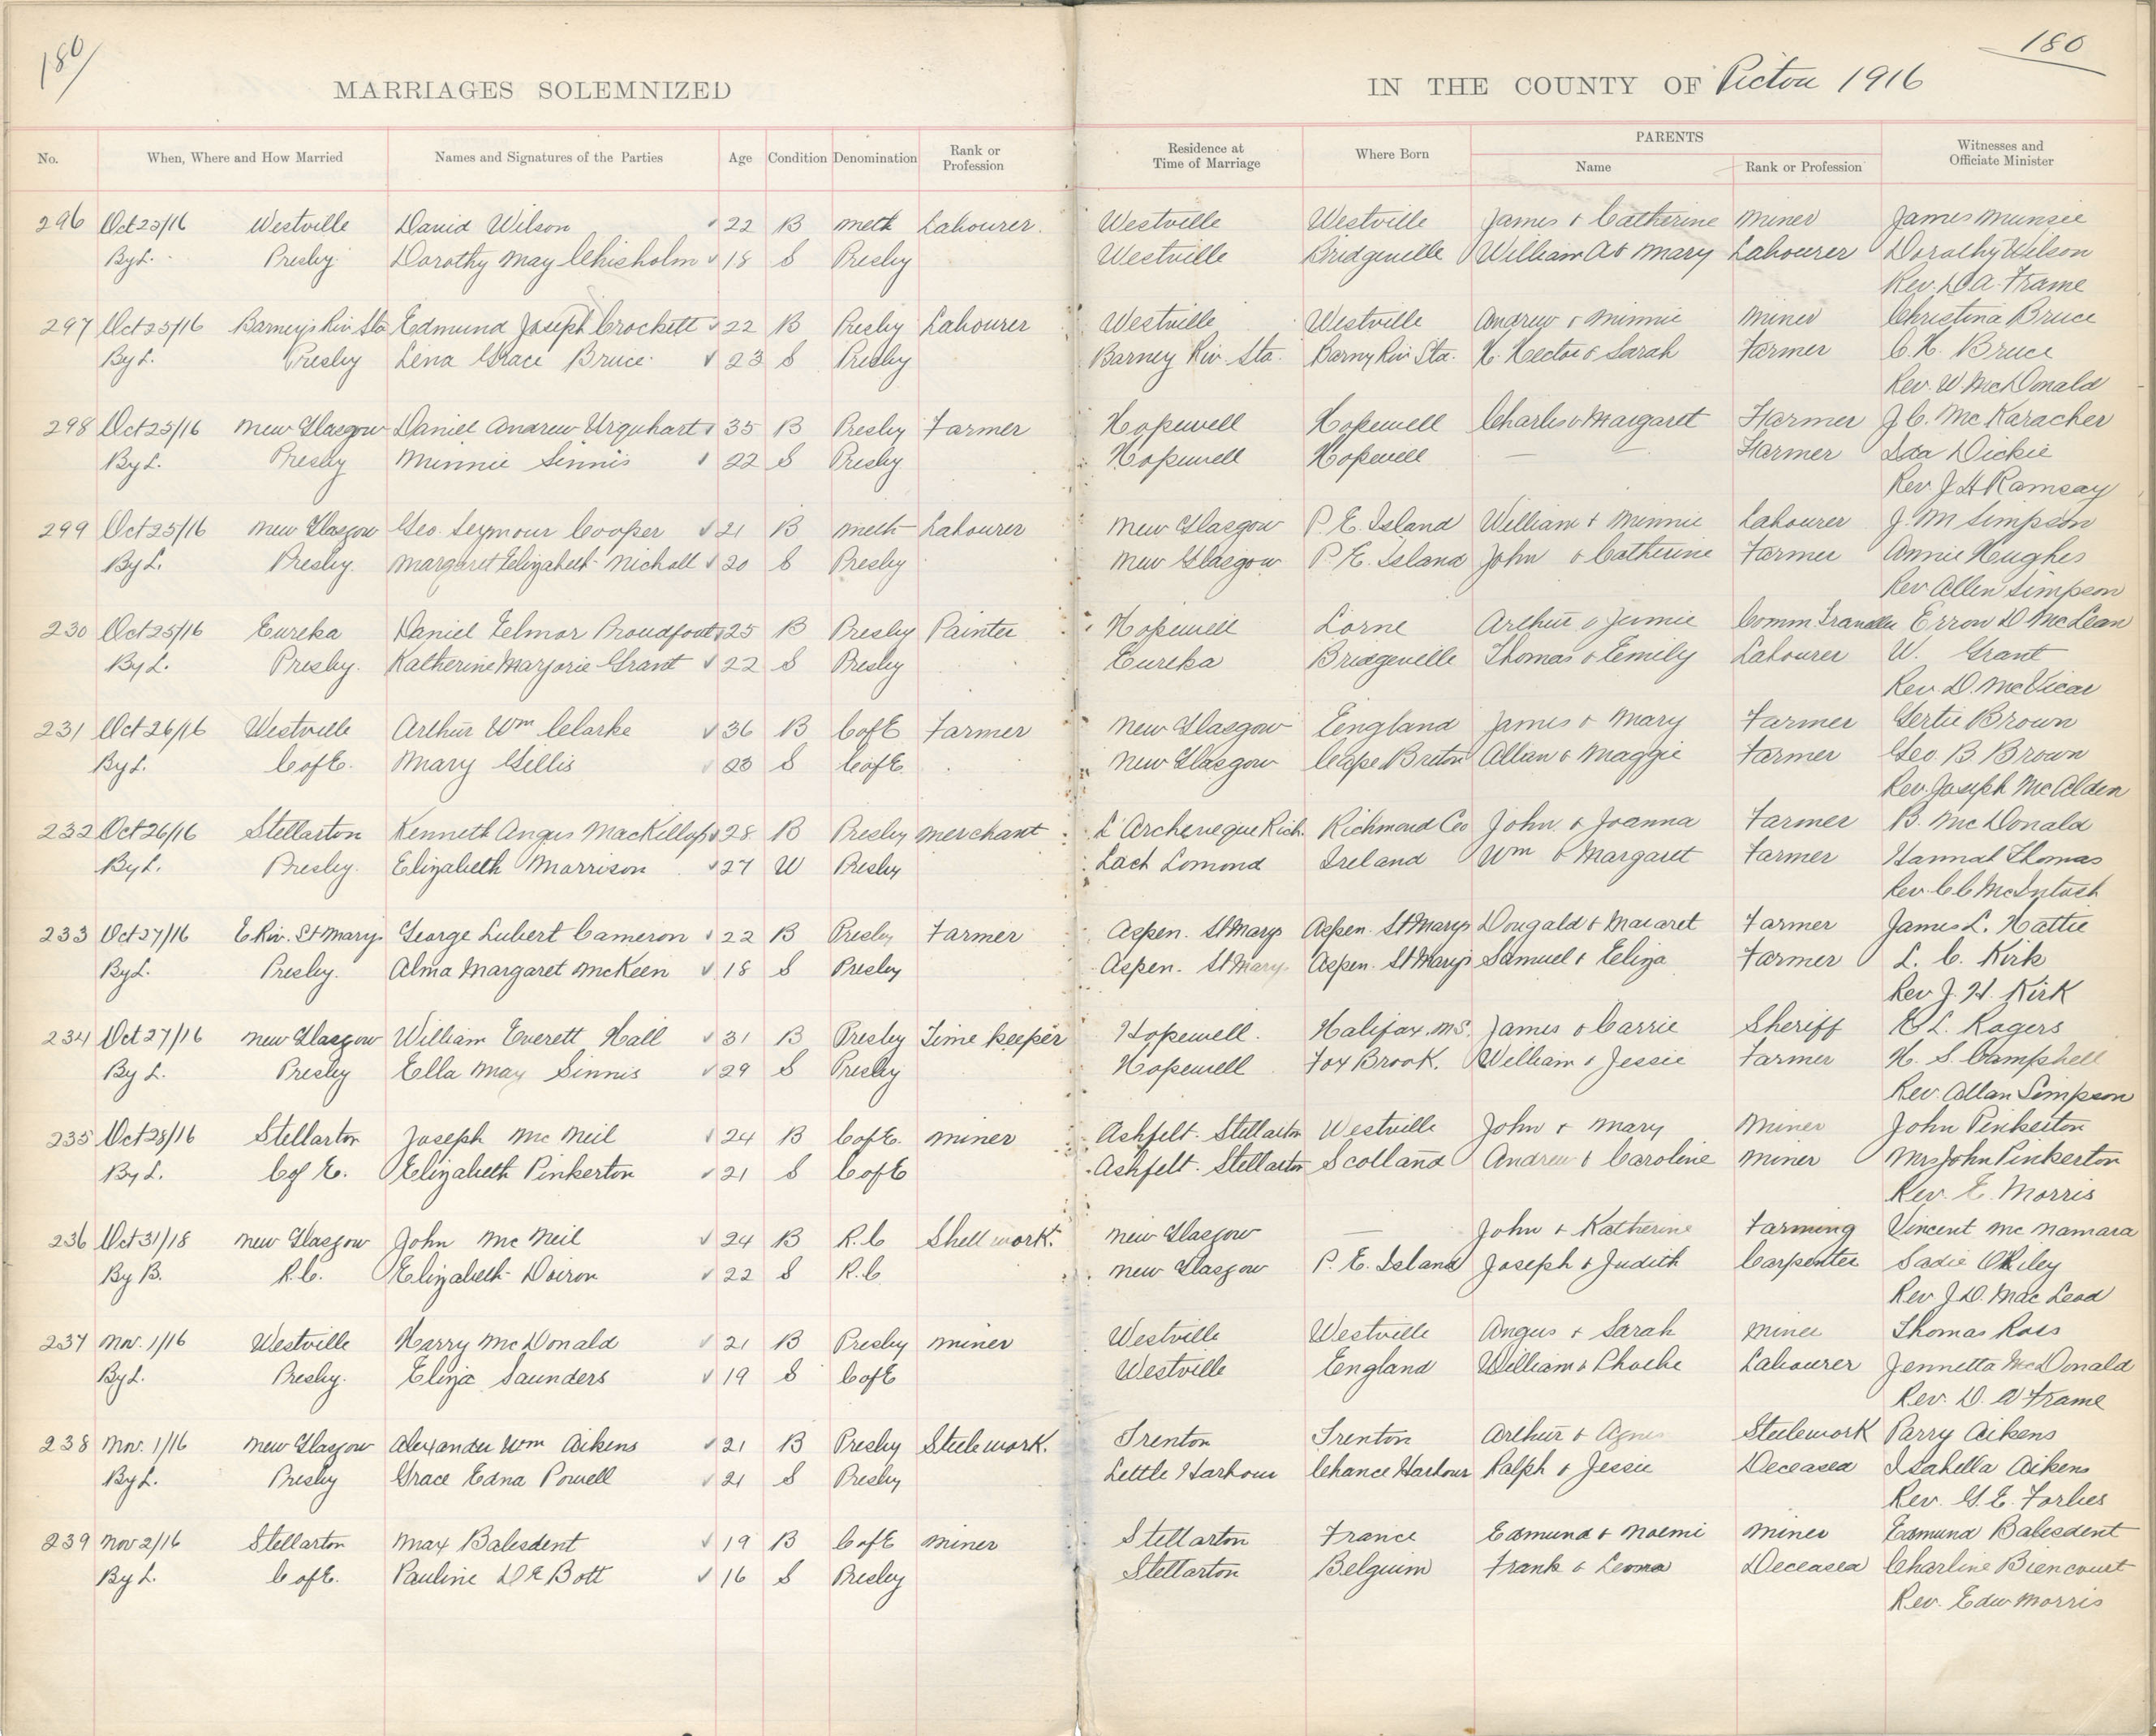 180 180
MARRIAGES SOLEMNIZED IN THE COUNTY OF Pictou 1916
No. When, Where and How Married Names and Signatures of the Parties Age Condition Denomination Rank or Profession Residence at Time of Marriage Where Born PARENTS Name Rank or Profession Witnesses and Officiate Minister
296 Oct 25/16 Westville David Wilson 22 B Meth Labourer. Westville Westville James & Catherine Miner James Munsie
By L. Presby. Dorothy May Chisholm 18 S Presby Westville Bridgeville William A & Mary Labourer Dorothy Wilson
Rev. D A. Frame
297 Oct 25/16 Barney's Riv Sta Edmund Joseph Crockett 22 B Presby Labourer Westville Westville Andrew & Minnie Miner Christina Bruce
By L. Presby Lena Grace Bruce. 23 S Presby Barney Riv. Sta. Barny Riv Sta. H. Hector & Sarah Farmer C. H. Bruce
Rev. W. McDonald
298 Oct 25/16 New Glasgow Daniel Andrew Urquhart 35 B Presby Farmer Hopewell Hopewell Charles & Margaret Farmer J. C. McKaracher
By L. Presby Minnie Sinnis 22 S Presby Hopewell Hopewell — — Farmer Ida Dickie
Rev J H Ramsay
299 Oct 25/16 New Glasgow Geo. Seymour Cooper 21 B Meth Labourer New Glasgow P. E. Island William & Minnie Labourer J. M Simpson
By L. Presby. Margaret Elizabeth Nicholl 20 S Presby New Glasgow P. E. Island John & Catherine Farmer Annie Hughes
Rev Allen Simpson
230 Oct 25/16 Eureka Daniel Elmor Proudfoot 25 B Presby Painter Hopewell Lorne Arthur & Jennie Comm Traveller Errow D McLean
By L. Presby. Katherine Marjorie Grant 22 S Presby Eureka Bridgeville Thomas & Emily Labourer W. Grant
Rev. D. McVicar
231 Oct 26/16 Westville Arthur Wm Clarke 36 B C of E Farmer New Glasgow England James & Mary Farmer Gertie Brown
By L. C of E. Mary Gillis 23 S C of E. New Glasgow Cape Breton Allan & Maggie Farmer Geo. B Brown
Rev. Joseph McAlden
232 Oct 26/16 Stellarton Kenneth Angus MacKillop 28 B Presby Merchant L'Archeveque Rich. Richmond Co John & Joanna Farmer B. McDonald
By L. Presby. Elizabeth Morrison 27 W Presby Loch Lomond Ireland Wm & Margaret Farmer Hannah Thomas
Rev. C C McIntosh
233 Oct 27/16 E Riv. St Marys George Lubert Cameron 22 B Presby Farmer Aspen. St Marys Aspen. St Marys Dougald & Macaret Farmer James L. Hattie
By L. Presby. Alma Margaret McKeen 18 S Presby Aspen. St Mary. Aspen. St Mary's Samuel & Eliza Farmer L. C. Kirk
Rev J. H. Kirk
234 Oct 27/16 New Glasgow William Everett Hall 31 B Presby Time keeper Hopewell. Halifax. N.S. James & Carrie Sheriff E L. Rogers
By L. Presby Ella May Sinnis 29 S Presby Hopewell Fox Brook. William & Jessie Farmer H. S. Campbell
Rev. Allan Simpson
235 Oct 28/16 Stellarton Joseph McNeil 24 B C of E. Miner Ashfelt. Stellarton Westville John & Mary Miner John Pinkerton
By L. C of E. Elizabeth Pinkerton 21 S C of E Ashfelt. Stellarton Scotland Andrew & Caroline Miner Mrs John Pinkerton
Rev. E. Morris
236 Oct 31/18 New Glasgow John McNeil 24 B R. C Shell work. New Glasgow — John & Katherine Farming Vincent McNamara
By B. R. C. Elizabeth Doiron 22 S R. C New Glasgow P. E. Island Joseph & Judith Carpenter Sadie O'Riley
Rev J. D. MacLeod
237 Nov. 1/16 Westville Harry McDonald 21 B Presby Miner Westville Westville Angus & Sarah Miner Thomas Ross
By L. Presby. Eliza Saunders 19 S C of E Westville England William & Phoebe Labourer Jennetta McDonald
Rev. D. A Frame
238 Nov. 1/16 New Glasgow Alexander Wm Aikens 21 B Presby Steelework. Trenton Trenton Arthur & Agnes Steelework Parry Aikens
By L. Presby Grace Edna Powell 21 S Presby Lettle Harbour Chance Harbour Ralph & Jessie Deceased Isabella Aikens
Rev. G. E. Forbes
239 Nov 2/16 Stellarton Max Balesdent 19 B C of E Miner Stellarton France Edmund & Noemi Miner Edmund Balesdent
By L. C of E. Pauline De Bott 16 S Presby Stellarton Belguim Frank & Leona Deceased Charline Biencourt
Rev. Edw Morris